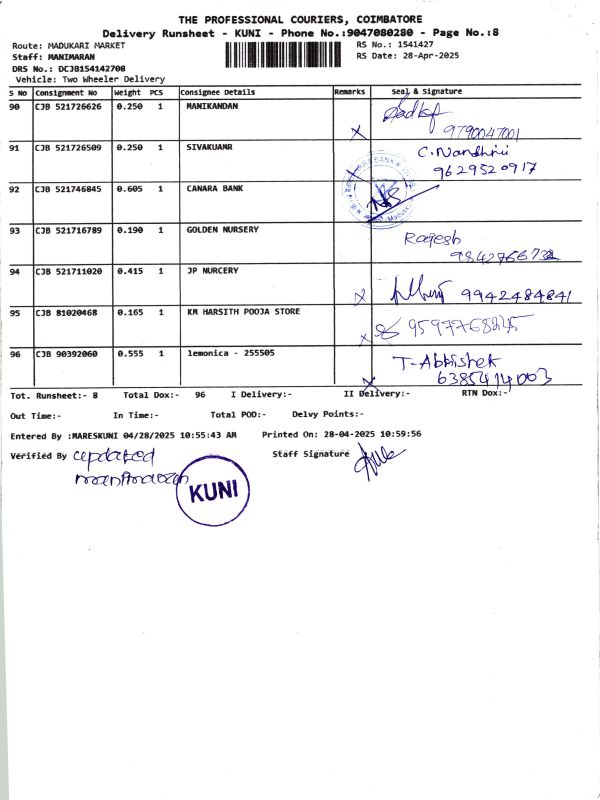 THE PROFESSIONAL COURIERS, COIMBATORE
Delivery Runsheet - KUNI - Phone No.:9047080280 - Page No.:8
Route: MADUKARI MARKET RS No.: 1541427
Staff: MANIMARAN RS Date: 28-Apr-2025
DRS No.: DCJB154142708
Vehicle: Two Wheeler Delivery
S No Consignment No Weight PCS Consignee Details Remarks Seal & Signature
90 CJB 521726626 0.250 1 MANIKANDAN
9790047001
91 CJB 521726509 0.250 1 SIVAKUAMR C. Nandhini
9629520917
92 CJB 521746845 0.605 1 CANARA BANK
93 CJB 521716789 0.190 1 GOLDEN NURSERY Ragesh
9842766732
94 CJB 521711020 0.415 1 JP NURCERY 9942484841
95 CJB 81020468 0.165 1 KM HARSITH POOJA STORE 9597768245
96 CJB 90392060 0.555 1 lemonica - 255505 T-Abhishek
6385414003
Tot. Runsheet:- 8 Total Dox:- 96 I Delivery:- II Delivery:- RTN Dox:-
Out Time:- In Time:- Total POD:- Delvy Points:-
Entered By :MARESKUNI 04/28/2025 10:55:43 AM Printed On: 28-04-2025 10:59:56
Verified By updated Staff Signature
KUNI